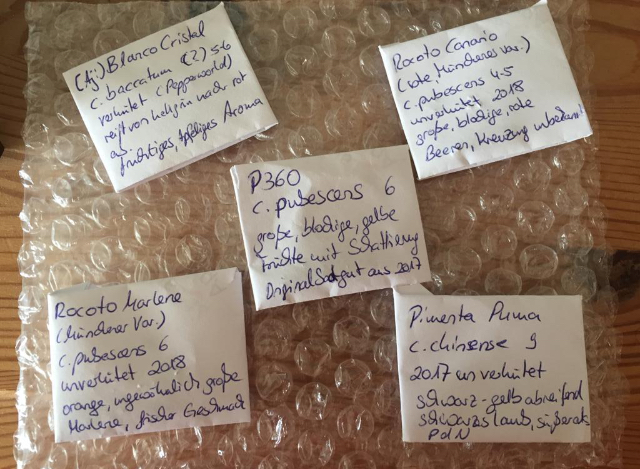 (Aji) Blanco Cristal
C. baccatum (2) 5-6
verhütet (Pepperworld)
reift von hellgrün nach rot
auf
fruchtiges, apfliges Aroma
Rocoto Canario
(rote, Münchener Var.)
C. pubescens 4-5
unverhütet 2018
große, blockige, rote
Beeren, Kreuzung unbekannt
P360
C. pubescens 6
große, blockige, gelbe
Früchte mit Schattierung
Original Saatgut aus 2017
Rocoto Marlene
(Münchener Var.)
C. pubescens 6
unverhütet 2018
orange, ungewöhnlich große
Marlene, frischer Geschmack
Pimenta Puma
C. chinense 9
2017 unverhütet
schwarz-gelb abreifend
schwarzes Laub, süßer als
PdN